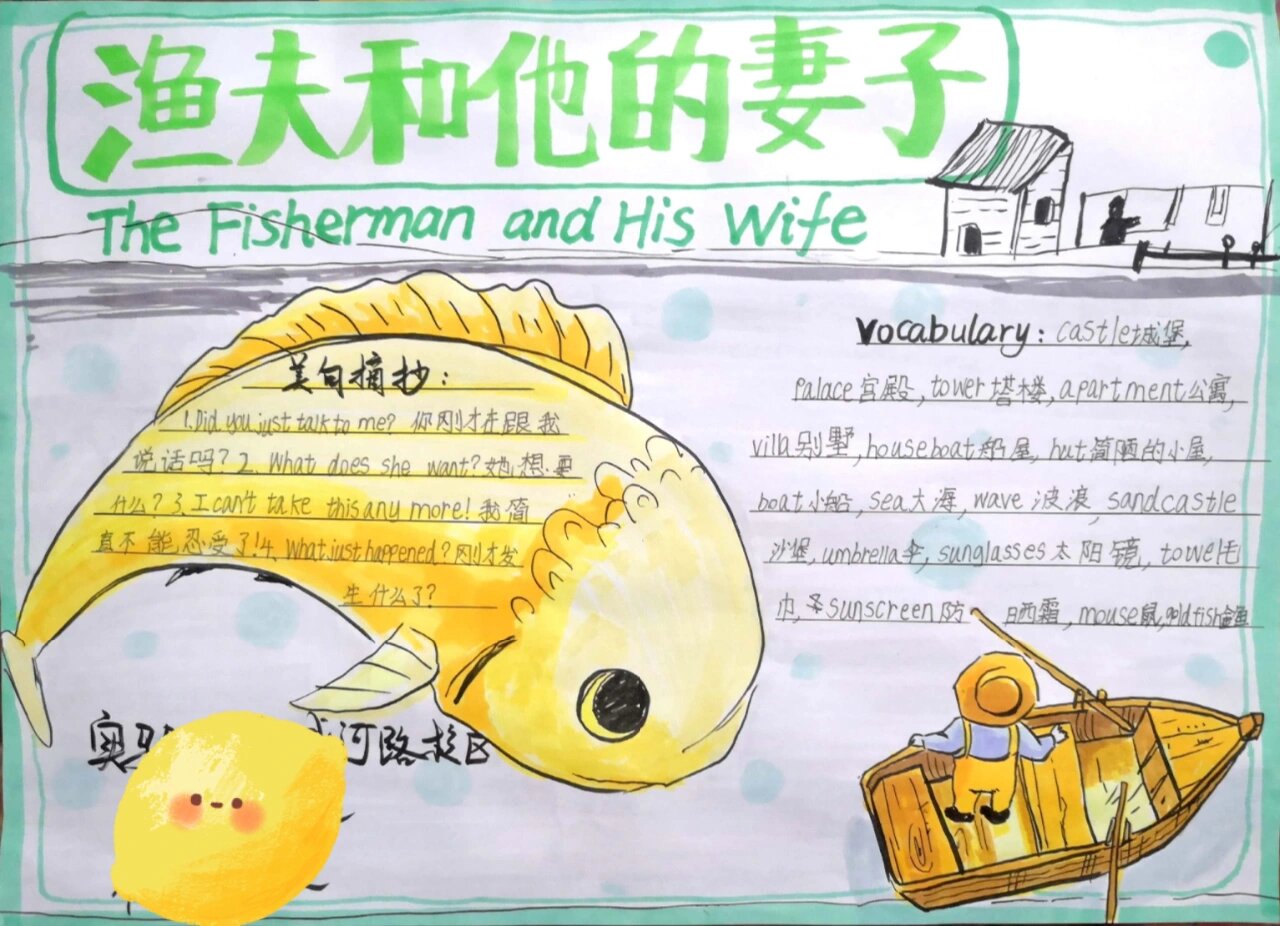 渔夫和他的妻子
The Fisherman and His Wife
美句摘抄：
1.Did you just talk to me? 你刚才在跟我
说话吗？2. What does she want? 她想要
什么？3. I can't take this any more! 我简
直不能忍受了！4. What just happened? 刚才发
生什么了？
Vocabulary: castle城堡,
palace宫殿,tower塔楼,apartment公寓,
villa别墅,houseboat船屋,hut简陋的小屋,
boat小船,sea大海,wave波浪,sandcastle
沙堡,umbrella伞,sunglasses太阳镜,towel毛
巾,sunscreen防晒霜,mouse鼠,goldfish金鱼
奥 河路校区